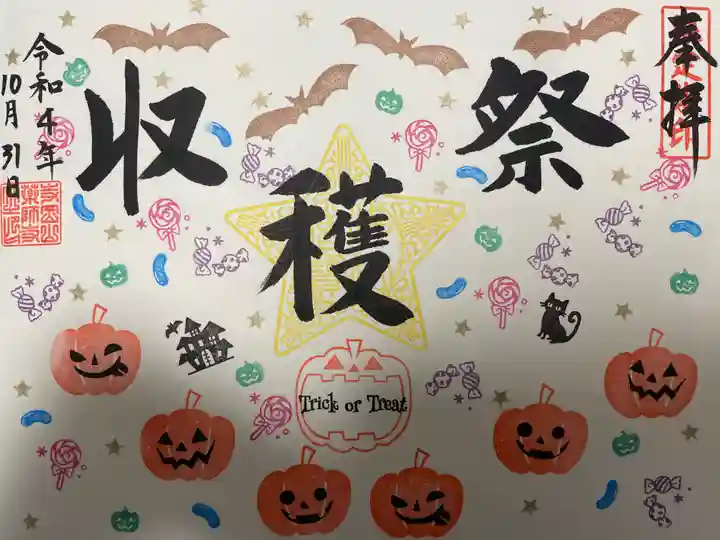 奉拝
収穫祭
Trick or Treat
令和4年
10月31日